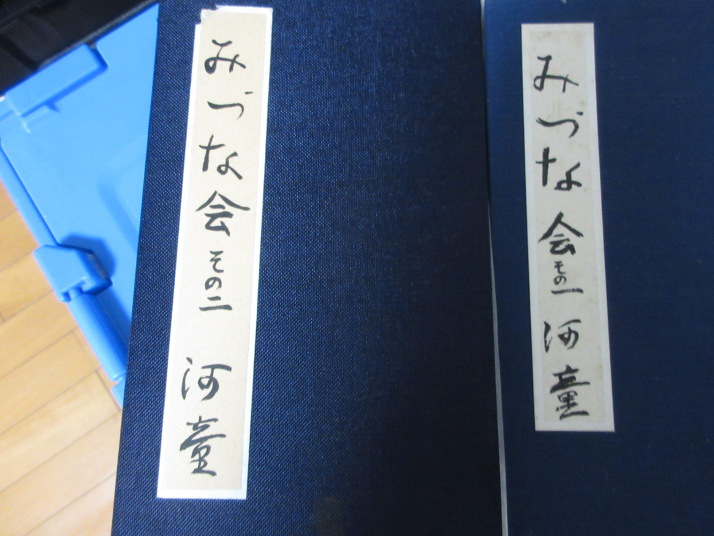 みづな会その二 河童
みづな会その一 河童